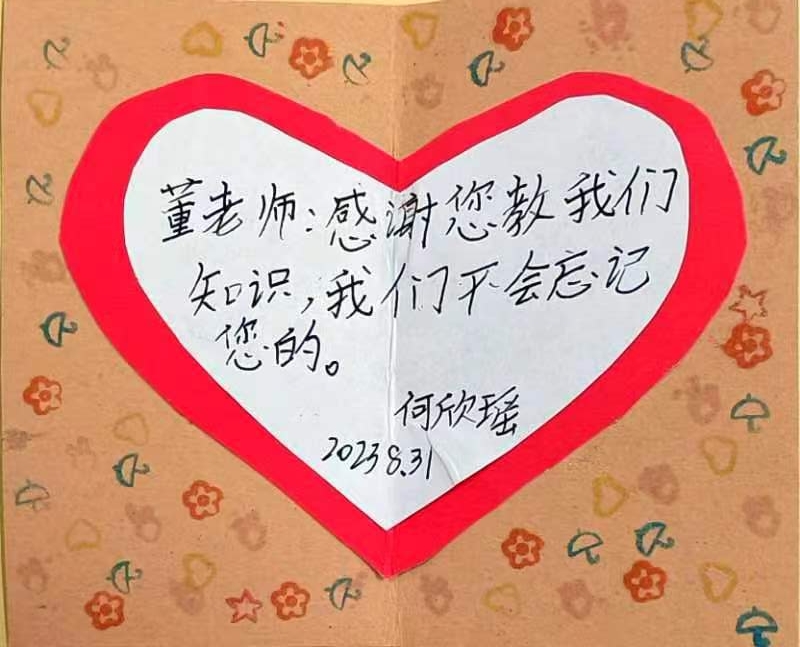 董老师:感谢您教我们
知识,我们不会忘记
您的。
何欣瑶
2023 8.31